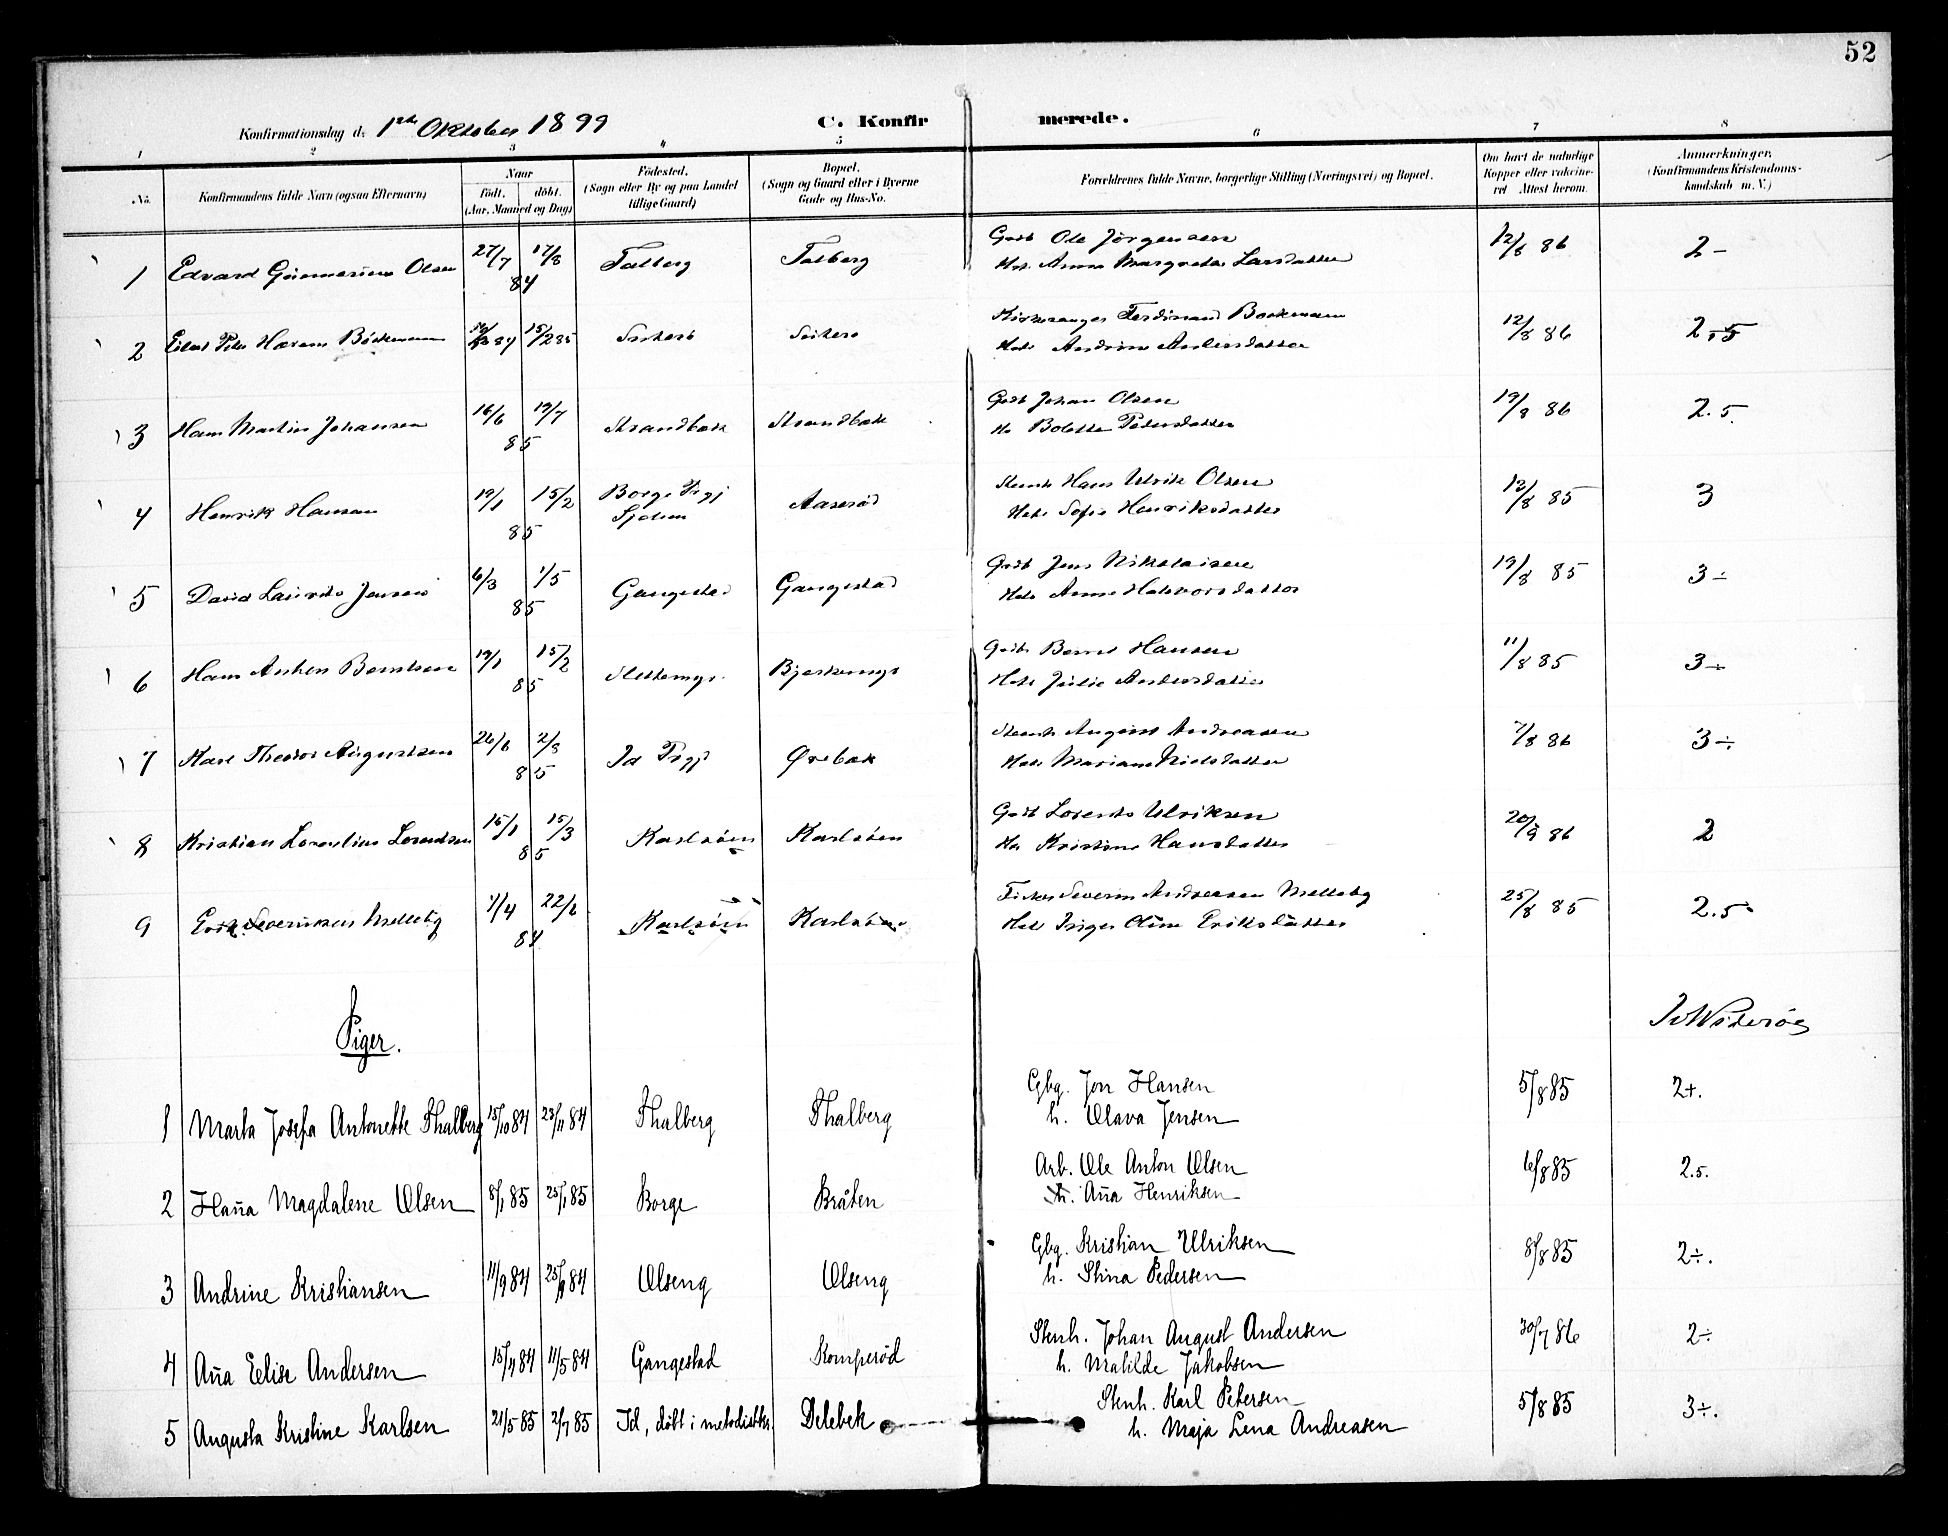 52
Konfirmationsdag d. 1ste Oktober 1899 C. Konfirmerede.
1 2 3 4 5 6 7 8
No. Konfirmandens fulde Navn (ogsaa Efternavn) Naar Født, døbt. (Aar, Maaned og Dag) Fødested. (Sogn eller By og paa Landet tillige Gaard) Bopæl. (Sogn og Gaard eller i Byerne Gade og Hus-No. Forældrenes fulde Navne, borgerlige Stilling (Næringsvei) og Bopæl. Om havt de naturlige Kopper eller vakcineret Attest herom. Anmærkninger, (Konfirmandens Kristendomskundskab m. V.)
1 Edvard Gunnerius Olsen 27/7 17/8 84 Talberg Talberg Gbst Ole Jørgensen 12/8 86 2 -
Hst. Anna Margrethe Larsdatter
2 Peter Bøckmann 84 15/2 85 Kirkesanger Ferdinand Bøckmann 12/8 86 2,5
Hst Andrine Andersdatter
3 Hans Martin Johansen 16/6 19/7 85 Strandbæk Strandbæk Gbst Johan Olsen 19/8 86 2.5.
Hst Bolette Pedersdatter
4 Henrik Hansen 19/1 15/2 85 Borge Prgj Aaserød Stenh Hans Ulrik Olsen 13/8 85 3
Hst Sofie Henriksdatter
5 David Laurits Jensen 6/3 1/5 85 Gangestad Gangestad Gbst Jens Nikolaisen 19/8 85 3 ÷
Hst Anne Halvorsdatter
6 Hans Anton Berntsen 19/1 15/2 85 Slettemyr Bjerkemyr Gbst Bernt Hansen 11/8 85 3 ÷
Hst Julie Andersdatter
7 Karl Theodor Augustsen 26/6 2/8 85 Id Prgj Ørebæk Stenh August Andreasen 7/8 86 3 ÷
Hst Mariane Nielsdatter
8 Kristian Lorentsen 15/1 15/3 85 Karlsøen Karlsøen Gbst Lorents Ulriksen 20/8 86 2
Hst Kristine Hansdatter
9 Erik Severinsen Melleby 1/4 22/6 84 Karlsøen Karlsøen Fisker Severin Andreasen Melleby 25/8 85 2.5
Hst Inger Oline Eriksdatter
Piger.
1 Marta Josefa Antonette Thalberg 15/10 84 23/11 84 Thalberg Thalberg Gbg. Jon Hansen 5/8 85 2+.
h. Olava Jensen
2 Hana Magdalene Olsen 8/1 85 25/1 85 Borge Bråten Arb. Ole Anton Olsen 6/8 85 2.5.
h. Ana Henriksen
3 Andrine Kristiansen 11/9 84 25/9 84 Olseng Olseng Gbg. Kristian Ulriksen 8/8 85 2÷.
h. Stina Pedersen
4 Ana Elise Andersen 15/4 84 11/5 84 Gangestad Komperød Stenh. Johan August Andersen 30/7 86 2÷
h. Matilde Jakobsen
5 Augusta Kristine Karlsen 21/5 85 2/7 85 Id, døbt i metodistk. Delebek Stenh. Karl Petersen 5/8 85 3÷.
h. Maja Lena Andreasen